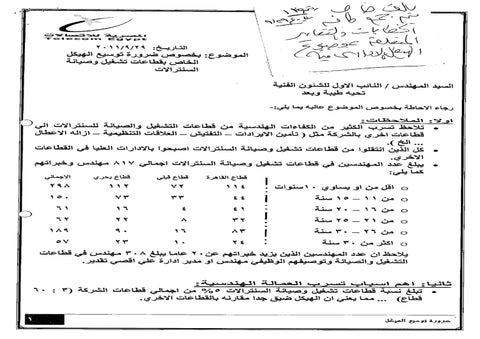 المصرية للاتصالات
Telecom Egypt
التاريخ: ٢٠١١/٩/٢٩
الموضوع: بخصوص ضرورة توسيع الهيكل
الخاص بقطاعات تشغيل وصيانة
السنترالات
السيد المهندس / النائب الاول للشئون الفنية
تحيه طيبة وبعد
رجاء الاحاطة بخصوص الموضوع عاليه بما يلي:-
اولا: الملاحظات:
• تلاحظ تسرب الكثير من الكفاءات الهندسية من قطاعات التشغيل والصيانة للسنترالات الى
قطاعات اخري بالشركة مثل ( تأمين الايرادات – التفتيش – العلاقات التنظيمية – ازاله الاعطال
... الخ ).
• كل الذين انتقلوا من قطاعات تشغيل وصيانة السنترالات اصبحوا بالادارات العليا في القطاعات
الاخري.
• يبلغ عدد المهندسين في قطاعات تشغيل وصيانة السنترالات اجمالي ٨١٧ مهندس وخبراتهم
قطاع القاهرة قطاع قبلي قطاع بحري الاجمالي
o اقل من او يساوي ١٠ سنوات ١١٤ ٧٢ ١١٢ ٢٩٨
o من ١١ – ١٥ سنة ٤٤ ٣٣ ٧٣ ١٥٠
o من ١٦ – ٢٠ سنة ٤١ ٤ ١٦ ٦١
o من ٢١ – ٢٥ سنة ٣٢ ٨ ٢٢ ٦٢
o من ٢٦ – ٣٠ سنة ٨٣ ١٦ ٩٠ ١٨٩
o اكثر من ٣٠ سنة ٢٤ ١٠ ٢٣ ٥٧
يلاحظ ان عدد المهندسين الذين يزيد خبراتهم عن ٢٠ عاما يبلغ ٣٠٨ مهندس في قطاعات
التشغيل والصيانة وتوصيفهم الوظيفي مهندس او مدير ادارة علي اقصي تقدير.
ثانيا: اهم اسباب تسرب العمالة الهندسية:
• تبلغ نسبة قطاعات تشغيل وصيانة السنترالات ٥% من اجمالي قطاعات الشركة ( ٣ : ٦٠
قطاع ) ... مما يعني ان الهيكل ضيق جدا مقارنه بالقطاعات الاخري.
ضرورة توسيع الهيكل
١